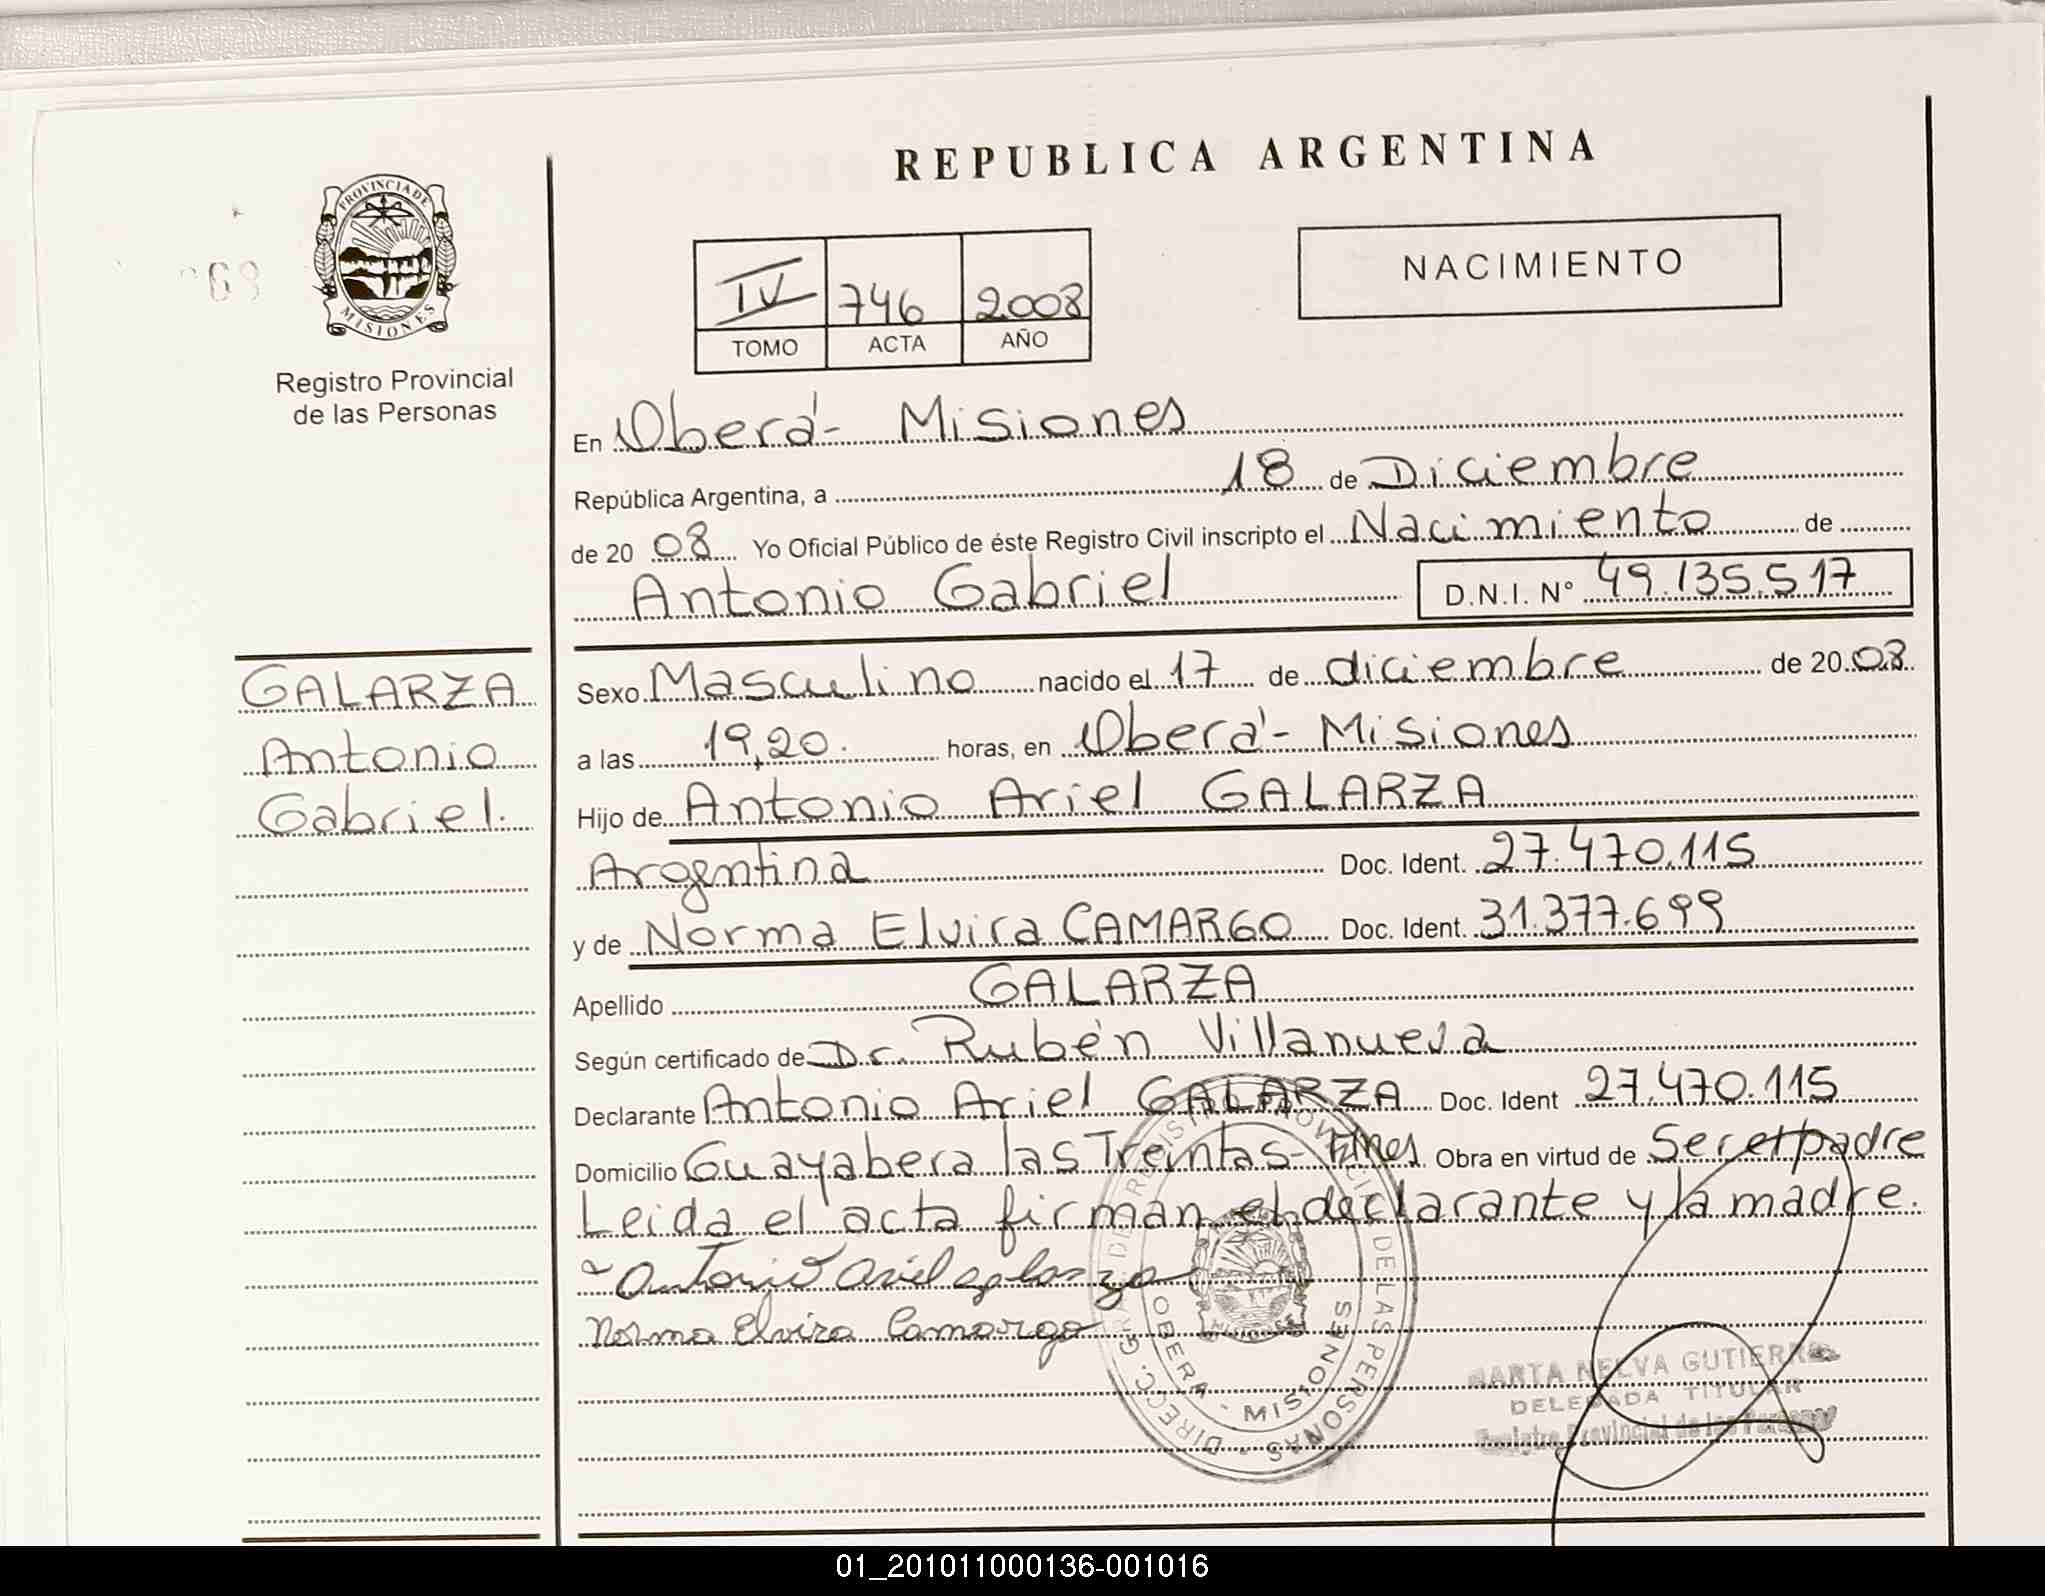 REPUBLICA ARGENTINA
PROVINCIA DE
MISIONES
Registro Provincial
de las Personas
IV 746 2008
TOMO ACTA AÑO
NACIMIENTO
En Oberá - Misiones
República Argentina, a 18 de Diciembre
de 20 08 Yo Oficial Público de éste Registro Civil inscripto el Nacimiento de
Antonio Gabriel D.N.I. Nº 49.135.517
GALARZA
Antonio
Gabriel.
Sexo Masculino nacido el 17 de diciembre de 20 08
a las 19,20. horas, en Oberá - Misiones
Hijo de Antonio Ariel GALARZA
Argentina Doc. Ident. 27.470.115
y de Norma Elvira CAMARGO Doc. Ident. 31.377.699
Apellido GALARZA
Según certificado de Dr. Rubén Villanueva
Declarante Antonio Ariel GALARZA Doc. Ident 27.470.115
Domicilio Guayabera las Treintas - Obra en virtud de Ser el padre
Leida el acta firman el declarante y la madre.
Antonio Ariel galarza
Norma Elvira Camargo
DIRECC. GRAL. DE REGISTRO PROVINCIAL DE LAS PERSONAS
OBERA - MISIONES
MARTA NELVA GUTIERREZ
DELEGADA TITULAR
Registro Provincial de las Personas
01_201011000136-001016